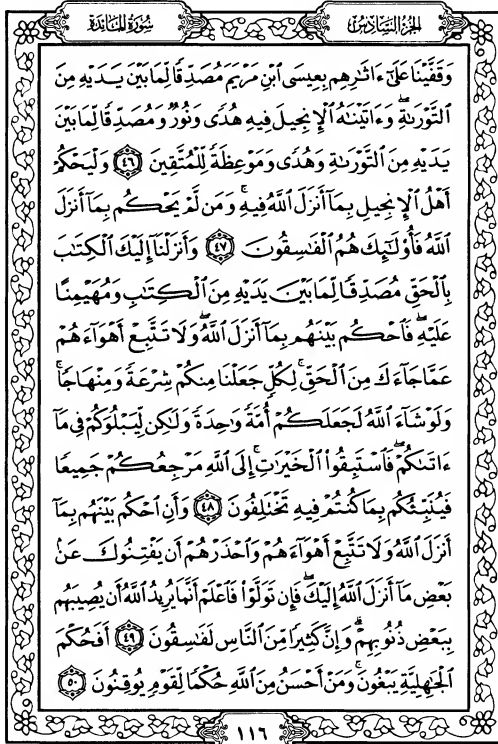 سُورَةُ المَائدة
الجزء السَّادِسُ
وَقَفَّيْنَا عَلَىٰٓ ءَاثَٰرِهِم بِعِيسَى ٱبْنِ مَرْيَمَ مُصَدِّقًا لِّمَا بَيْنَ يَدَيْهِ مِنَ
ٱلتَّوْرَىٰةِ ۖ وَءَاتَيْنَٰهُ ٱلْإِنجِيلَ فِيهِ هُدًى وَنُورٌ وَمُصَدِّقًا لِّمَا بَيْنَ
يَدَيْهِ مِنَ ٱلتَّوْرَىٰةِ وَهُدًى وَمَوْعِظَةً لِّلْمُتَّقِينَ ٤٦ وَلْيَحْكُمْ
أَهْلُ ٱلْإِنجِيلِ بِمَآ أَنزَلَ ٱللَّهُ فِيهِ ۚ وَمَن لَّمْ يَحْكُم بِمَآ أَنزَلَ
ٱللَّهُ فَأُو۟لَٰٓئِكَ هُمُ ٱلْفَٰسِقُونَ ٤٧ وَأَنزَلْنَآ إِلَيْكَ ٱلْكِتَٰبَ
بِٱلْحَقِّ مُصَدِّقًا لِّمَا بَيْنَ يَدَيْهِ مِنَ ٱلْكِتَٰبِ وَمُهَيْمِنًا
عَلَيْهِ ۖ فَٱحْكُم بَيْنَهُم بِمَآ أَنزَلَ ٱللَّهُ ۖ وَلَا تَتَّبِعْ أَهْوَآءَهُمْ
عَمَّا جَآءَكَ مِنَ ٱلْحَقِّ ۚ لِكُلٍّ جَعَلْنَا مِنكُمْ شِرْعَةً وَمِنْهَاجًا ۚ
وَلَوْ شَآءَ ٱللَّهُ لَجَعَلَكُمْ أُمَّةً وَٰحِدَةً وَلَٰكِن لِّيَبْلُوَكُمْ فِى مَآ
ءَاتَىٰكُمْ ۖ فَٱسْتَبِقُوا۟ ٱلْخَيْرَٰتِ ۚ إِلَى ٱللَّهِ مَرْجِعُكُمْ جَمِيعًا
فَيُنَبِّئُكُم بِمَا كُنتُمْ فِيهِ تَخْتَلِفُونَ ٤٨ وَأَنِ ٱحْكُم بَيْنَهُم بِمَآ
أَنزَلَ ٱللَّهُ وَلَا تَتَّبِعْ أَهْوَآءَهُمْ وَٱحْذَرْهُمْ أَن يَفْتِنُوكَ عَنۢ
بَعْضِ مَآ أَنزَلَ ٱللَّهُ إِلَيْكَ ۖ فَإِن تَوَلَّوْا۟ فَٱعْلَمْ أَنَّمَا يُرِيدُ ٱللَّهُ أَن يُصِيبَهُم
بِبَعْضِ ذُنُوبِهِمْ ۗ وَإِنَّ كَثِيرًا مِّنَ ٱلنَّاسِ لَفَٰسِقُونَ ٤٩ أَفَحُكْمَ
ٱلْجَٰهِلِيَّةِ يَبْغُونَ ۚ وَمَنْ أَحْسَنُ مِنَ ٱللَّهِ حُكْمًا لِّقَوْمٍ يُوقِنُونَ ٥٠
١١٦